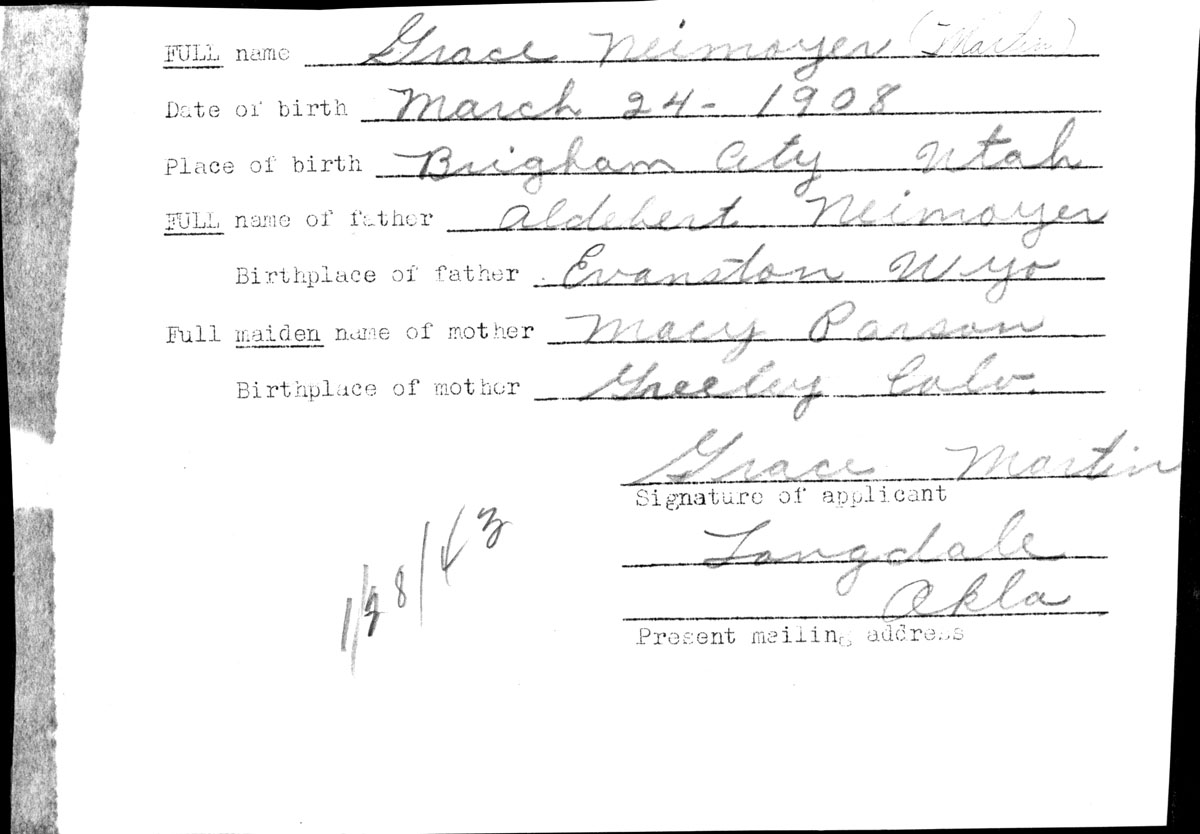 FULL name Grace Neimoyer (Martin)
Date of birth March 24 - 1908
Place of birth Brigham City Utah
FULL name of father Aldebert Neimoyer
Birthplace of father Evanston Wyo
Full maiden name of mother Macy Parson
Birthplace of mother Greeley Colo.
Grace Martin
Signature of applicant
Longdale
Okla
Present mailing address